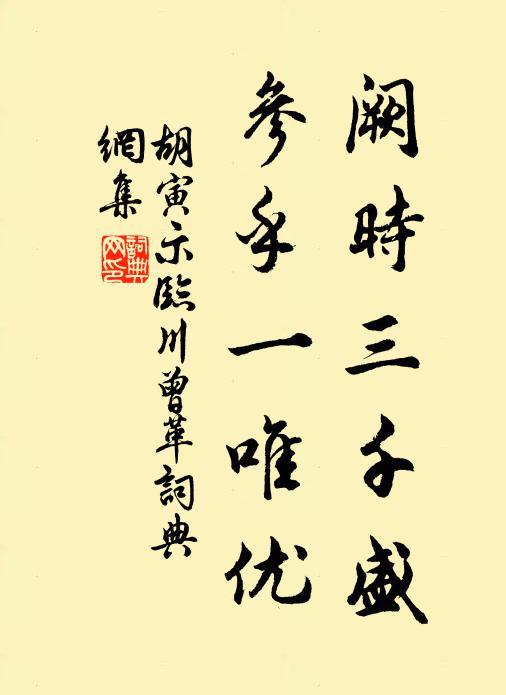 阙時三千盛
參乎一唯优
胡寅示臨川曾革詞典
網集
詞典
网印